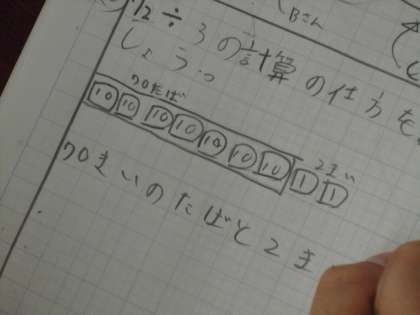 Bさん
72÷3の計算の仕方を
しょう。
70たば 2まい
10 10 10 10 10 10 10 1 1
70まいのたばと2ま